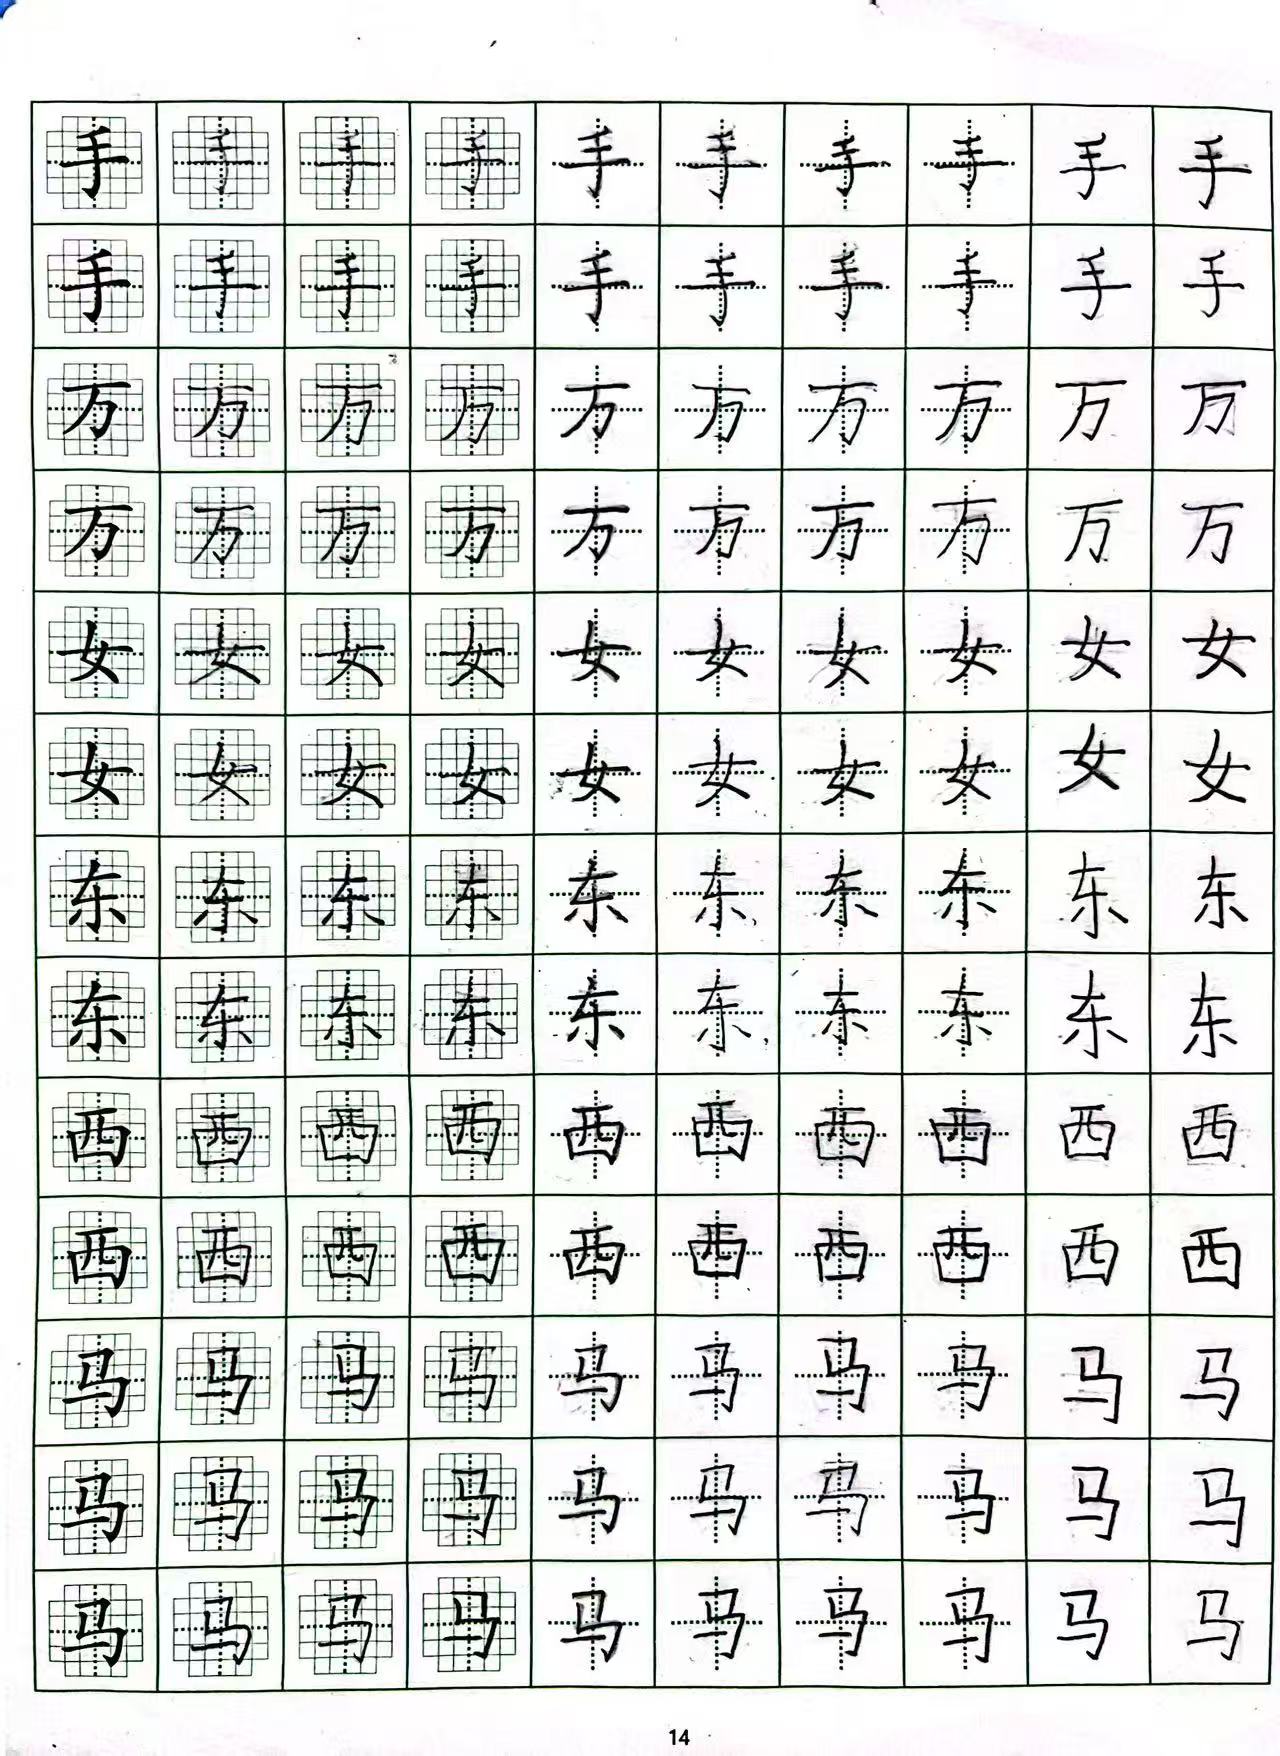 手手手手手手手手手手
手手手手手手手手手手
万万万万万万万万万万
万万万万万万万万万万
女女女女女女女女女女
女女女女女女女女女女
东东东东东东东东东东
东东东东东东东东东东
西西西西西西西西西西
西西西西西西西西西西
马马马马马马马马马马
马马马马马马马马马马
马马马马马马马马马马
14